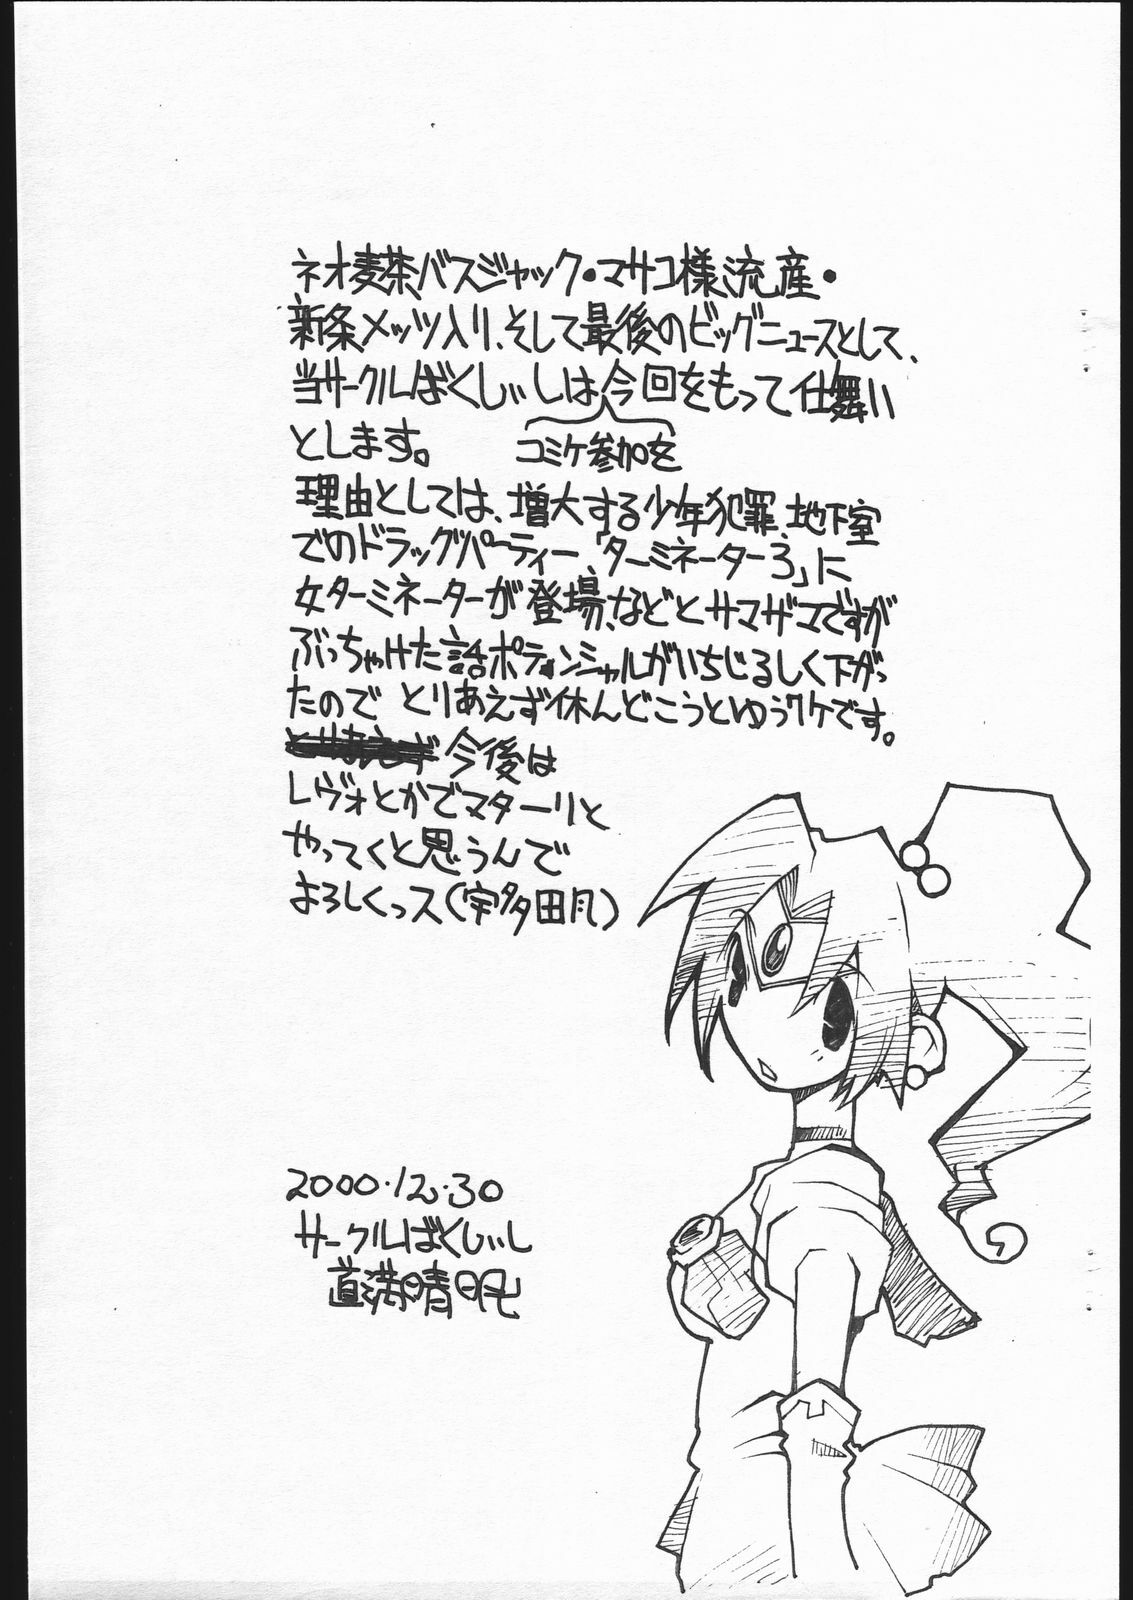 ネオ麦茶バスジャック・マサコ様流産・
新条メッツ入り、そして最後のビッグニュースとして、
当サークルばくしぃしは今回をもって仕舞い
コミケ参加を
とします。
理由としては、増大する少年犯罪、地下室
でのドラッグパーティー、「ターミネーター3」に
女ターミネーターが登場、などとサマザマですが
ぶっちゃけた話ポテンシャルがいちじるしく下がっ
たのでとりあえず休んどこうとゆうワケです。
今後は
レヴォとかでマターリと
やってくと思うんで
よろしくっス(宇多田風)
2000.12.30
サークルばくしぃし
道満晴明